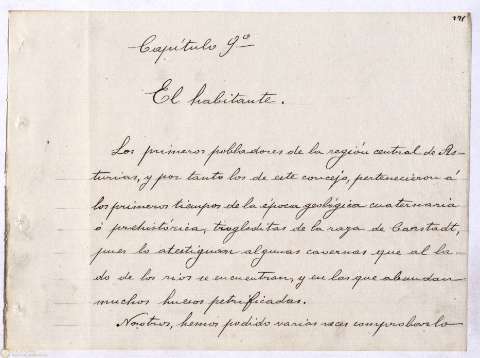 Capítulo 9º
El habitante.
Los primeros pobladores de la región central de As-
turias, y por tanto los de este concejo, pertenecieron á
los primeros tiempos de la época geológica cuaternaria
ó prehistórica, trogloditas de la raza de Canstadt,
pues lo atestiguan algunas cavernas que al la-
do de los rios se encuentran, y en las que abundan
muchos huesos petrificados.
Nosotros, hemos podido varias veces comprobarlo